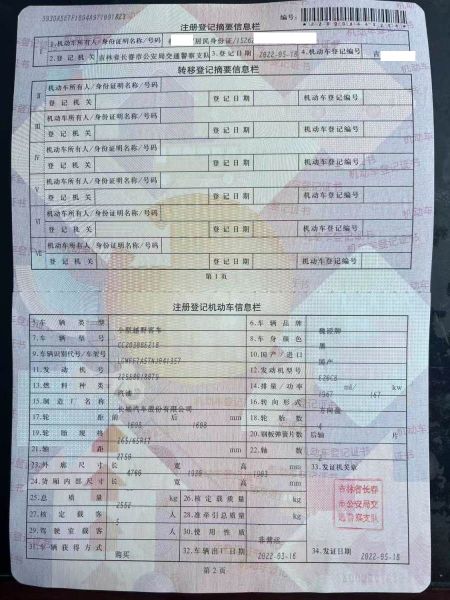 注册登记摘要信息栏
编号:
Ⅰ 1.机动车所有人/身份证明名称/号码 居民身份证/1526
2.登记机关 吉林省长春市公安局交通警察支队 3.登记日期 2022-05-18 4.机动车登记编号 吉
转移登记摘要信息栏
Ⅱ 机动车所有人/身份证明名称/号码
登记机关 登记日期 机动车登记编号
Ⅲ 机动车所有人/身份证明名称/号码
登记机关 登记日期 机动车登记编号
Ⅳ 机动车所有人/身份证明名称/号码
登记机关 登记日期 机动车登记编号
Ⅴ 机动车所有人/身份证明名称/号码
登记机关 登记日期 机动车登记编号
Ⅵ 机动车所有人/身份证明名称/号码
登记机关 登记日期 机动车登记编号
Ⅶ 机动车所有人/身份证明名称/号码
登记机关 登记日期 机动车登记编号
第1页
注册登记机动车信息栏
5.车辆类型 小型越野客车 6.车辆品牌 魏派牌
7.车辆型号 8.车身颜色 黑
9.车辆识别代号/车架号 10.国产/进口 国产
11.发动机号 12.发动机型号
13.燃料种类 汽油 14.排量/功率 1967 ml/ 167 kw
15.制造厂名称 长城汽车股份有限公司 16.转向形式 方向盘
17.轮距 前 后 1608 mm 18.轮胎数 4
19.轮胎规格 265/65R17 20.钢板弹簧片数 后轴 片
21.轴距 2750 mm 22.轴数 2
23.外廓尺寸 长 宽 高 mm 33.发证机关章
24.货厢内部尺寸 长 宽 高 mm
25.总质量 2552 kg 26.核定载质量 kg
27.核定载客 5 人 28.准牵引总质量 kg
29.驾驶室载客 人 30.使用性质 非营运
31.车辆获得方式 购买 32.车辆出厂日期 2022-03-16 34.发证日期 2022-05-18
吉林省长春
市公安局交
通警察支队
第2页